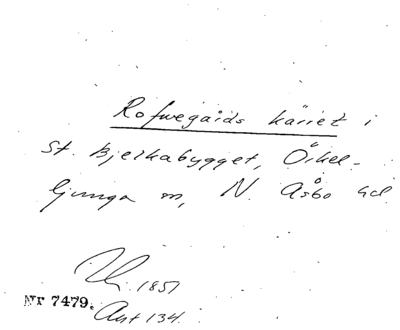 Rofwegårds kärret i
St. Bjerkabygget, Örkel-
ljunga m, N. Åsbo hd
1851
Nr 7479.
Avt 134.